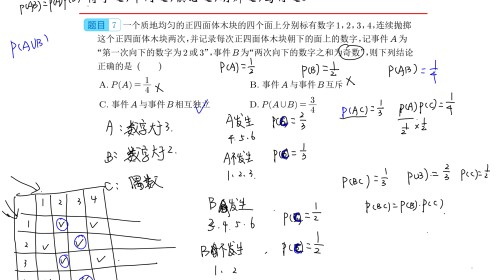 P(A∪B)
题目 7 一个质地均匀的正四面体木块的四个面上分别标有数字1,2,3,4,连续抛掷
这个正四面体木块两次,并记录每次正四面体木块朝下的面上的数字,记事件A为
“第一次向下的数字为2或3”,事件B为“两次向下的数字之和为奇数”,则下列结论
正确的是( )
P(A)=1/2 P(B)=1/2 P(AB)=1/4
A. P(A)=1/4 × B. 事件A与事件B互斥 ×
C. 事件A与事件B相互独立 ✓ D. P(A∪B)=3/4
P(AC)=1/3 P(A)P(C)=1/4
1/2 × 1/2
A:数字大于3. A发生 P(C)=2/3
4.5.6
B:数字大于2. A不发生 P(C)=1/3
1.2.3
C:偶数
P(BC)=1/3 P(B)=2/3 P(C)=1/2
P(BC)=P(B).P(C)
B发生 P(C)=1/2
3.4.5.6
B不发生 P(C)=1/2
1.2
1 2 3 4
1 ✓ ✓
2 ✓ ✓
3 ✓
4